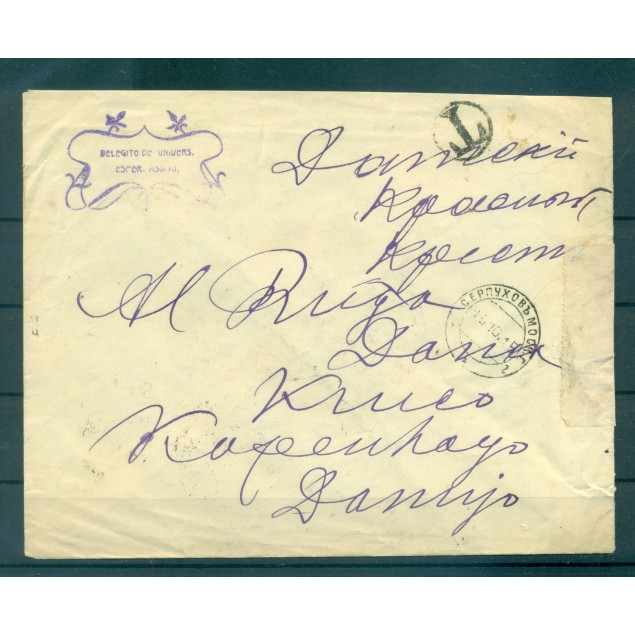 DELEGITO DE UNIVERS.
ESPER. ASOCIO.
T
Датскій
Красный
Крестъ
Al Ruĝa
Dana
Kruco
Kopenhago
Danujo
СЕРПУХОВЪ МОСК.